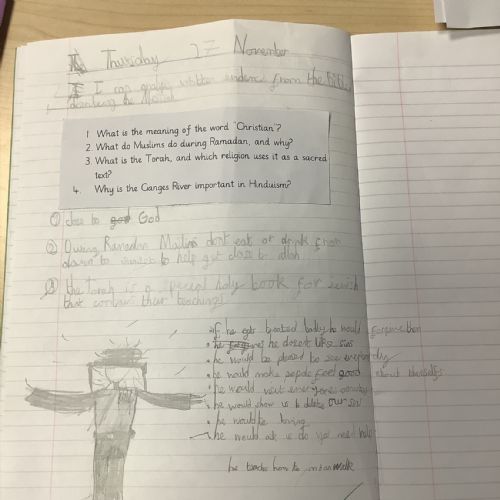 Thursday 27 November
I can analyse written evidence from the Bible,
describing the Messiah
1 What is the meaning of the word "Christian"?
2. What do Muslims do during Ramadan, and why?
3. What is the Torah, and which religion uses it as a sacred
text?
4. Why is the Ganges River important in Hinduism?
① close to God
② During Ramadan Muslims dont eat or drink from
dawn to sunset to help get close to allah
③ the Torah is a special holy book for Jewish
that contains their teachings
if he gets treated badly he would forgive them
he doesnt like sins
he would be pleased to see everybody
he would make people feel good about themselves
he would visit everyones
he would show us to delete our sin
he would be loving
he would ask us do you need help
he teachs how to walk